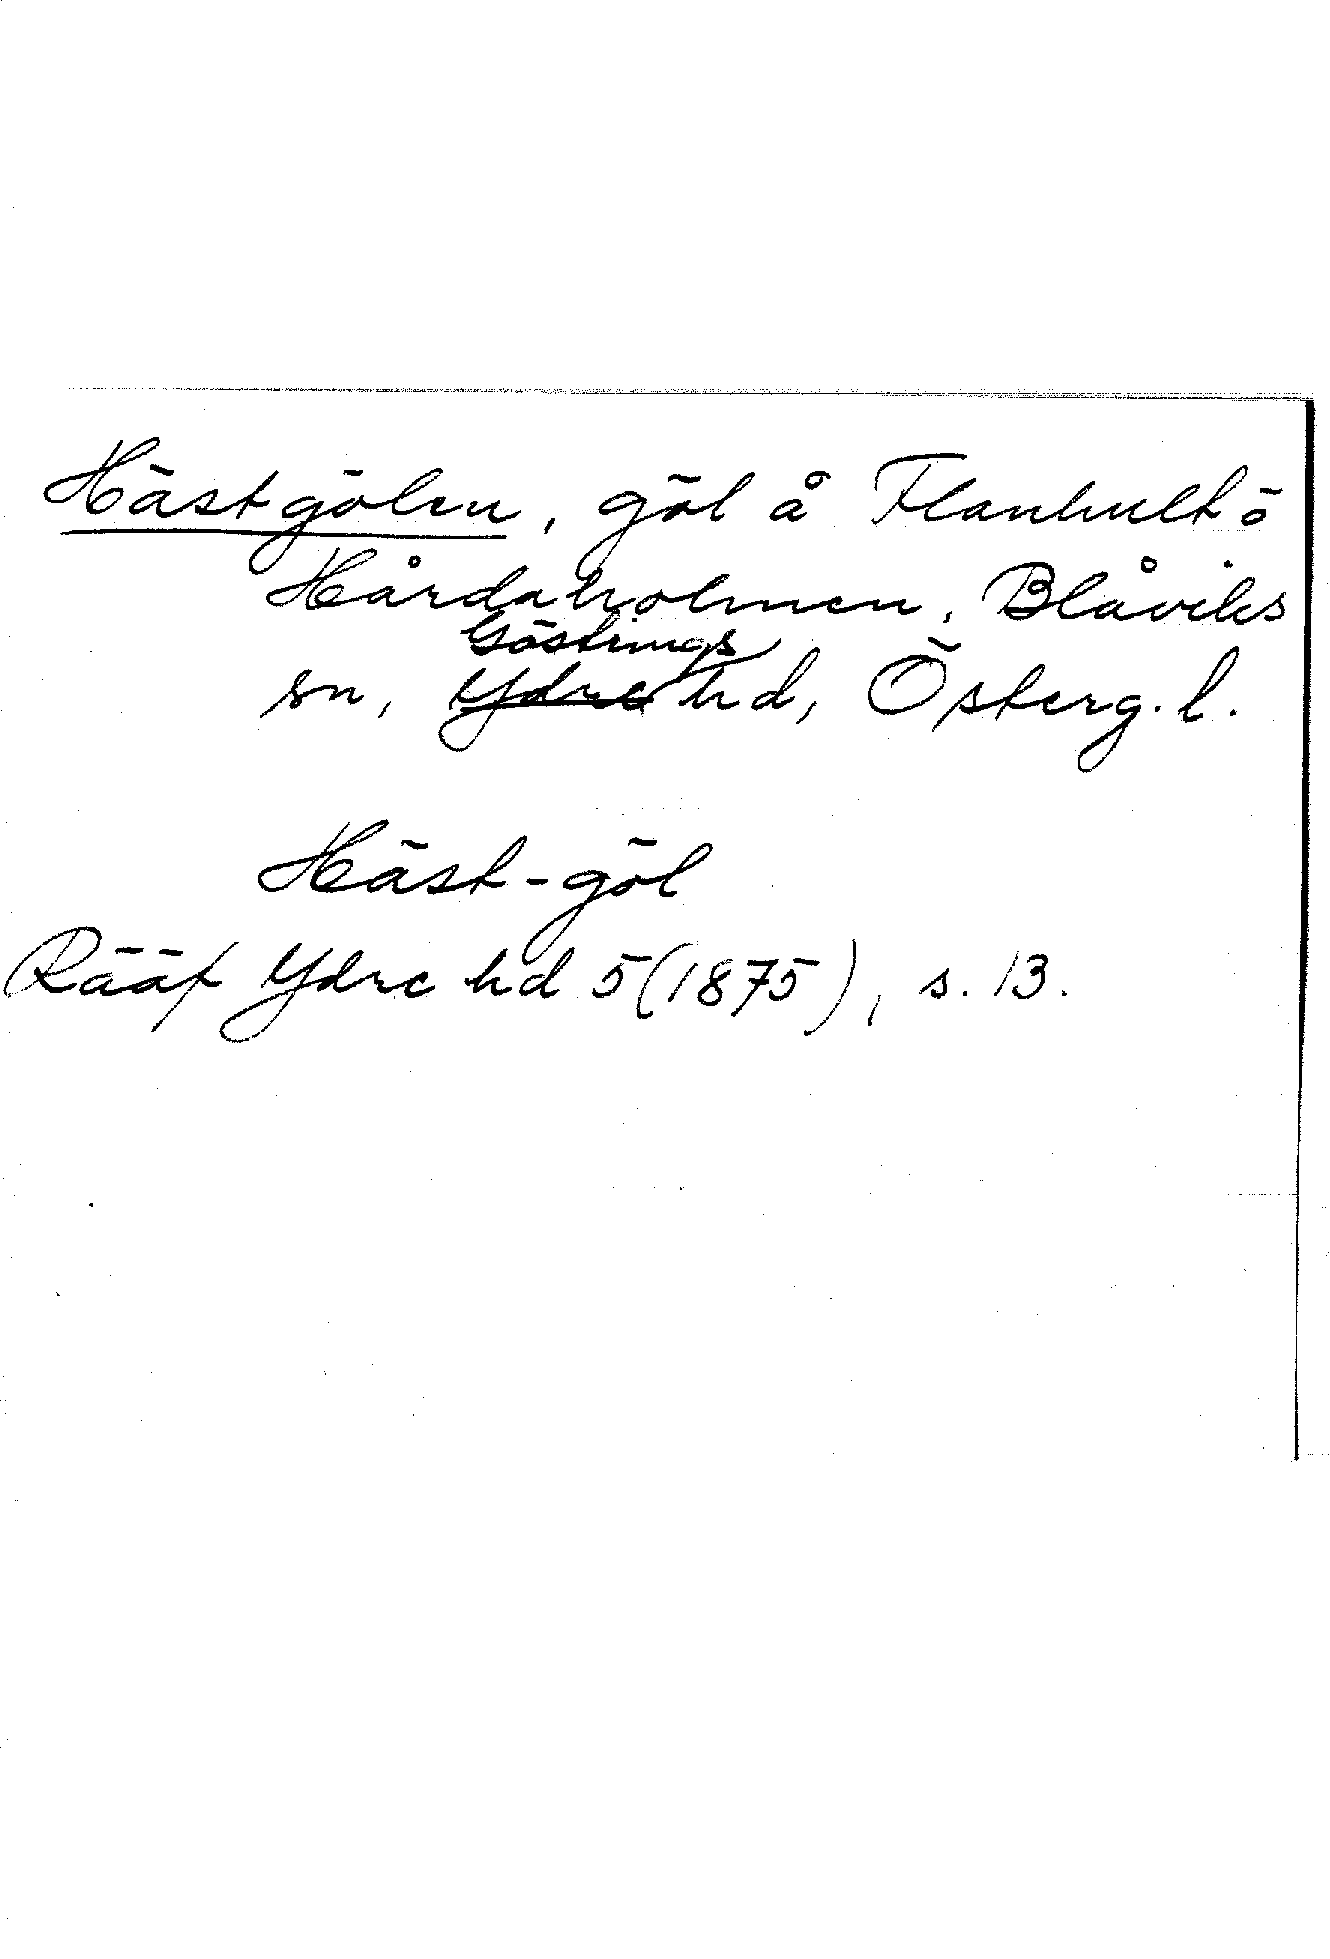 Hästgölen, göl å Flanhult o
Hårdaholmen, Blåviks
Göstrings
sn, Ydre hd, Österg. l.
Häst-göl
Rääf Ydre hd 5 (1875), s. 13.